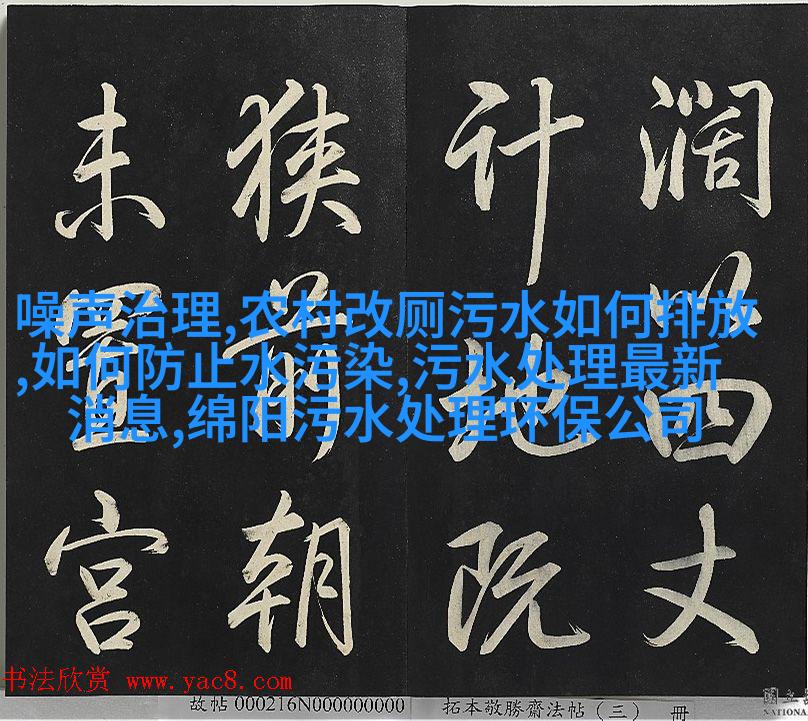 濶四丈
計地既
狹前朝
未置宮
噪声治理,农村改厕污水如何排放
,如何防止水污染,污水处理最新
消息,绵阳污水处理环保公司
书法欣赏 www.yac8.com
故帖 000216N000000000 拓本敬勝齋法帖（三） 冊
國立
NATIONA